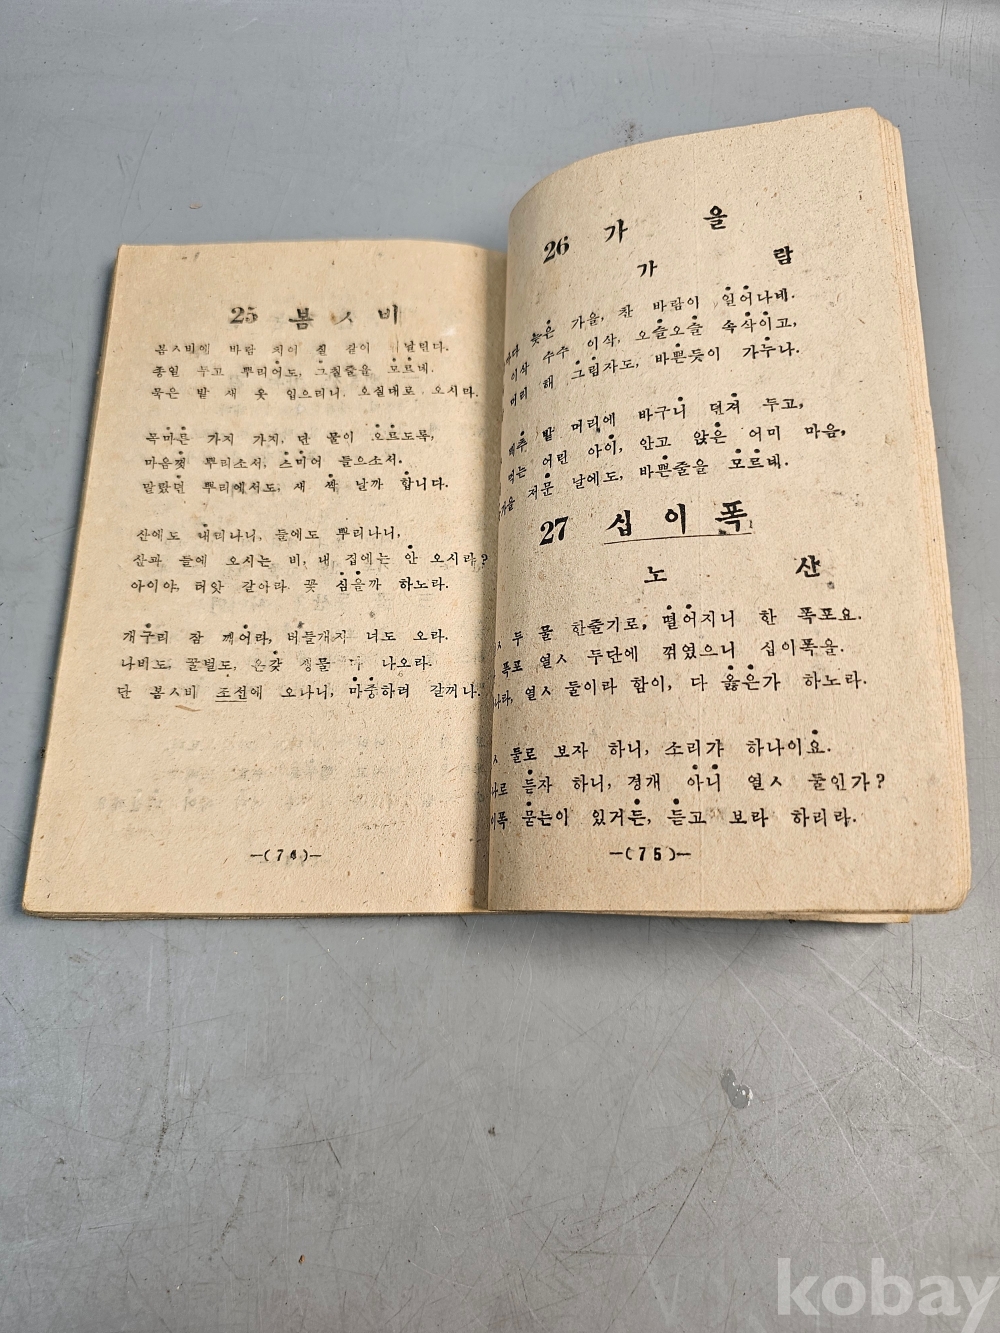 25 봄ㅅ비
봄ㅅ비에 바람 치어 실 같이 날린다.
종일 두고 뿌리어도, 그칠줄을 모르네.
묵은 밭 새 옷 입으리니 오실대로 오시라.
목마른 가지 가지, 단 물이 오르도록,
마음껏 뿌리소서, 스미어 들으소서.
말랐던 뿌리에서도, 새 싹 날까 합니다.
산에도 내리나니, 들에도 뿌리나니,
산과 들에 오시는 비, 내 집에는 안 오시랴?
아이야, 터앗 갈아라 꽃 심을까 하노라.
개구리 잠 깨어라, 버들개지 너도 오라.
나비도, 꿀벌도, 온갖 생물 다 나오라.
단 봄ㅅ비 조선에 오나니, 마중하러 갈꺼나.
—(74)—
26 가을
가람
늦은 가을, 찬 바람이 일어나네.
이삭 수수 이삭, 오슬오슬 속삭이고,
머리 해 그림자도, 바쁜듯이 가누나.
배추 밭 머리에 바구니 던져 두고,
어린 아이, 안고 앉은 어미 마음,
가을 저문 날에도, 바쁜줄을 모르네.
27 십이폭
노산
두 물 한줄기로, 떨어지니 한 폭포요.
폭포 열ㅅ 두단에 꺾였으니 십이폭을.
열ㅅ 둘이라 함이, 다 옳은가 하노라.
둘로 보자 하니, 소리가 하나이요.
듣자 하니, 경개 아니 열ㅅ 둘인가?
묻는이 있거든, 듣고 보라 하리라.
—(75)—
kobay